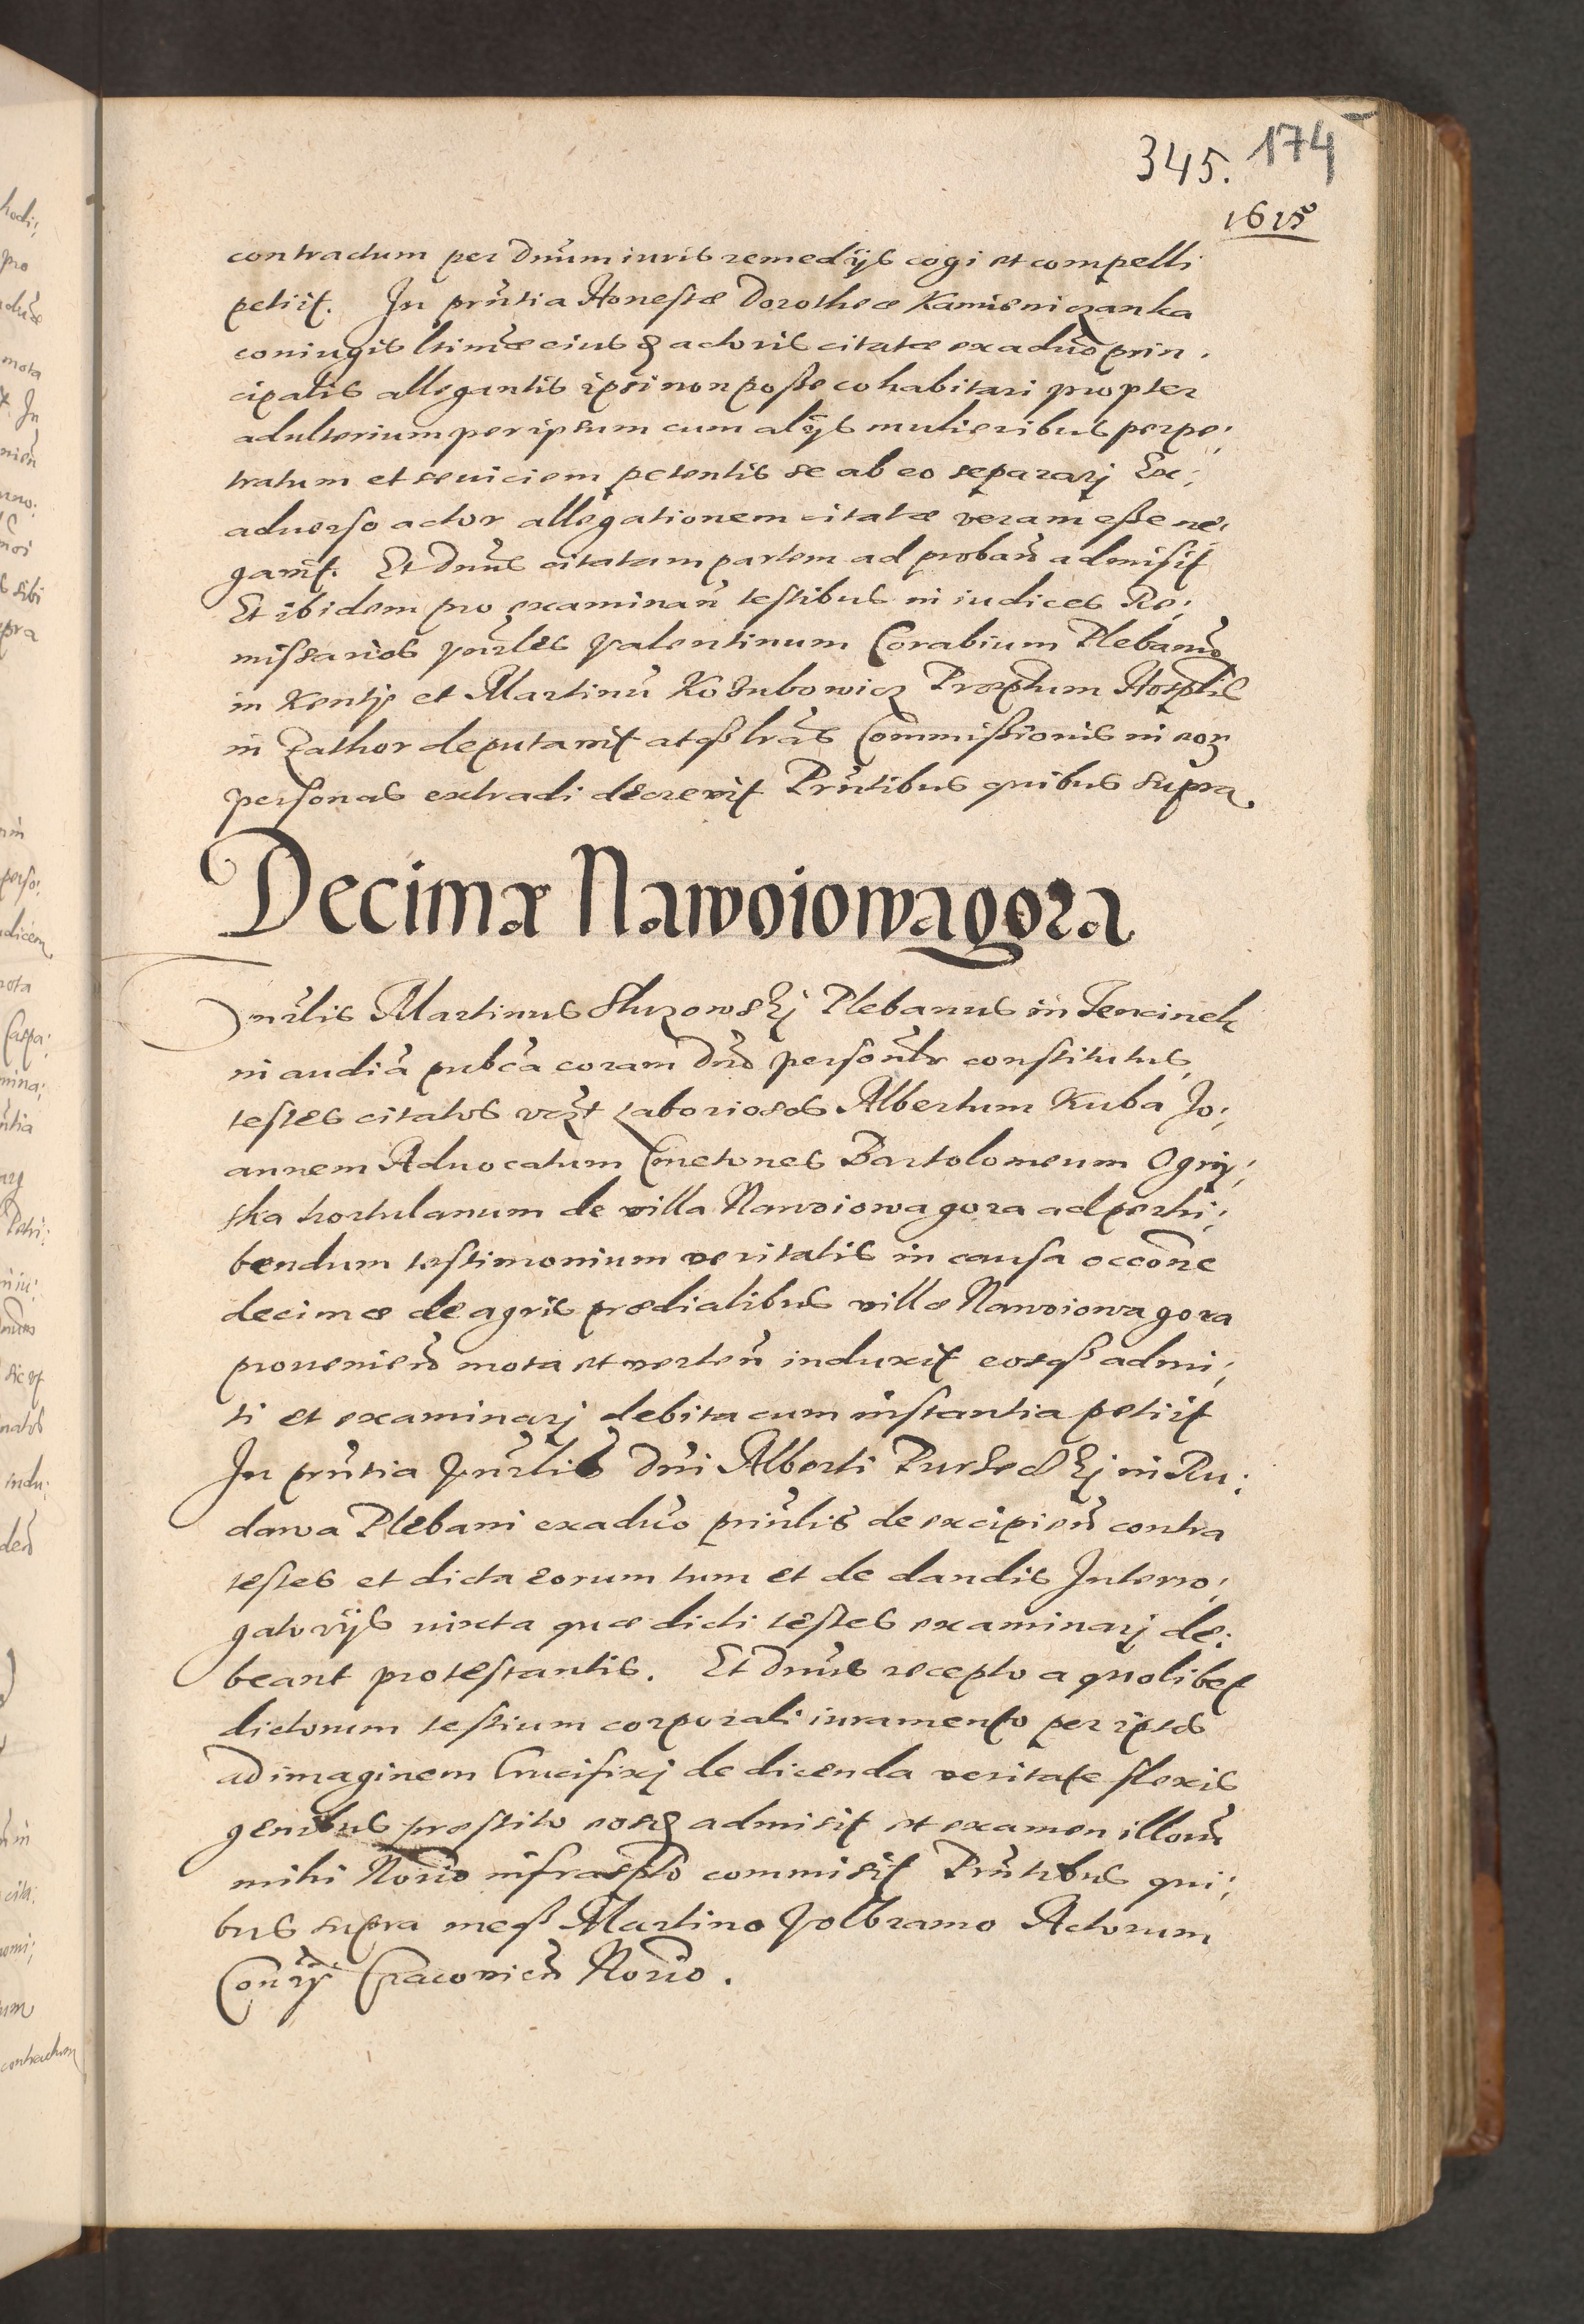 345. 174
1615
contractum per Dnum iuris remedijs cogi et compelli
petiit. In prntia Honestæ Dorotheæ Kamieniczanka
coniugis ltimæ eius q actoris citatæ exaduo prin,
cipalis allegantis ipsi non posse cohabitari propter
adulterium per ipsum cum alijs mulieribus perpe,
tratum et seuiciem petentis se ab eo separarj Ex,
aduerso actor allegationem citatæ veram esse ne,
gauit. Et Dnus citatam partem ad proban admisit
Et ibidem pro examinan testibus in iudices Re,
missarios vnrles Valentinum Corabium Plebanu
in Kenty et Martinu Kozubowicz Præptum Hosplis
in Zathor deputauit atqz lras Commissionis in eoz
personas extradi decreuit Prntibus quibus supra
Decimæ Nawoiowagora
Vnrlis Martinus Sluzowskj Plebanus in Tencinek
in audia pubca coram Dno personlr constitutus
testes citatos vczt Laboriosos Albertum Kuba Jo,
annem Aduocatum Cmetones Bartolomeum Ogry,
ska hortulanum de villa Nawoiowagora ad perhi,
bendum testimonium veritatis in causa occone
decimæ de agris prædialibus villæ Nawoiowagora
prouenien mota et verten induxit eosqz admi,
ti et examinarj debita cum instantia petiit
In prntia Vnrlis Dni Alberti Purseskj in Ru,
dawa Plebani exaduo prinlis de excipien contra
testes et dicta eorum tum et de dandis Interro,
gatorijs iuxta quæ dicti testes examinarj de,
beant protestantis. Et Dnus recepto a quolibet
dictorum testium corporali iuramento per ipsos
ad imaginem Crucifixj de dicenda veritate flexis
genibus præstito eosq admisit et examen illoru
mihi Norio infrascpto commisit Prntibus qui,
bus supra meqz Martino Volbramo Actorum
Conrij Cracouien Norio.